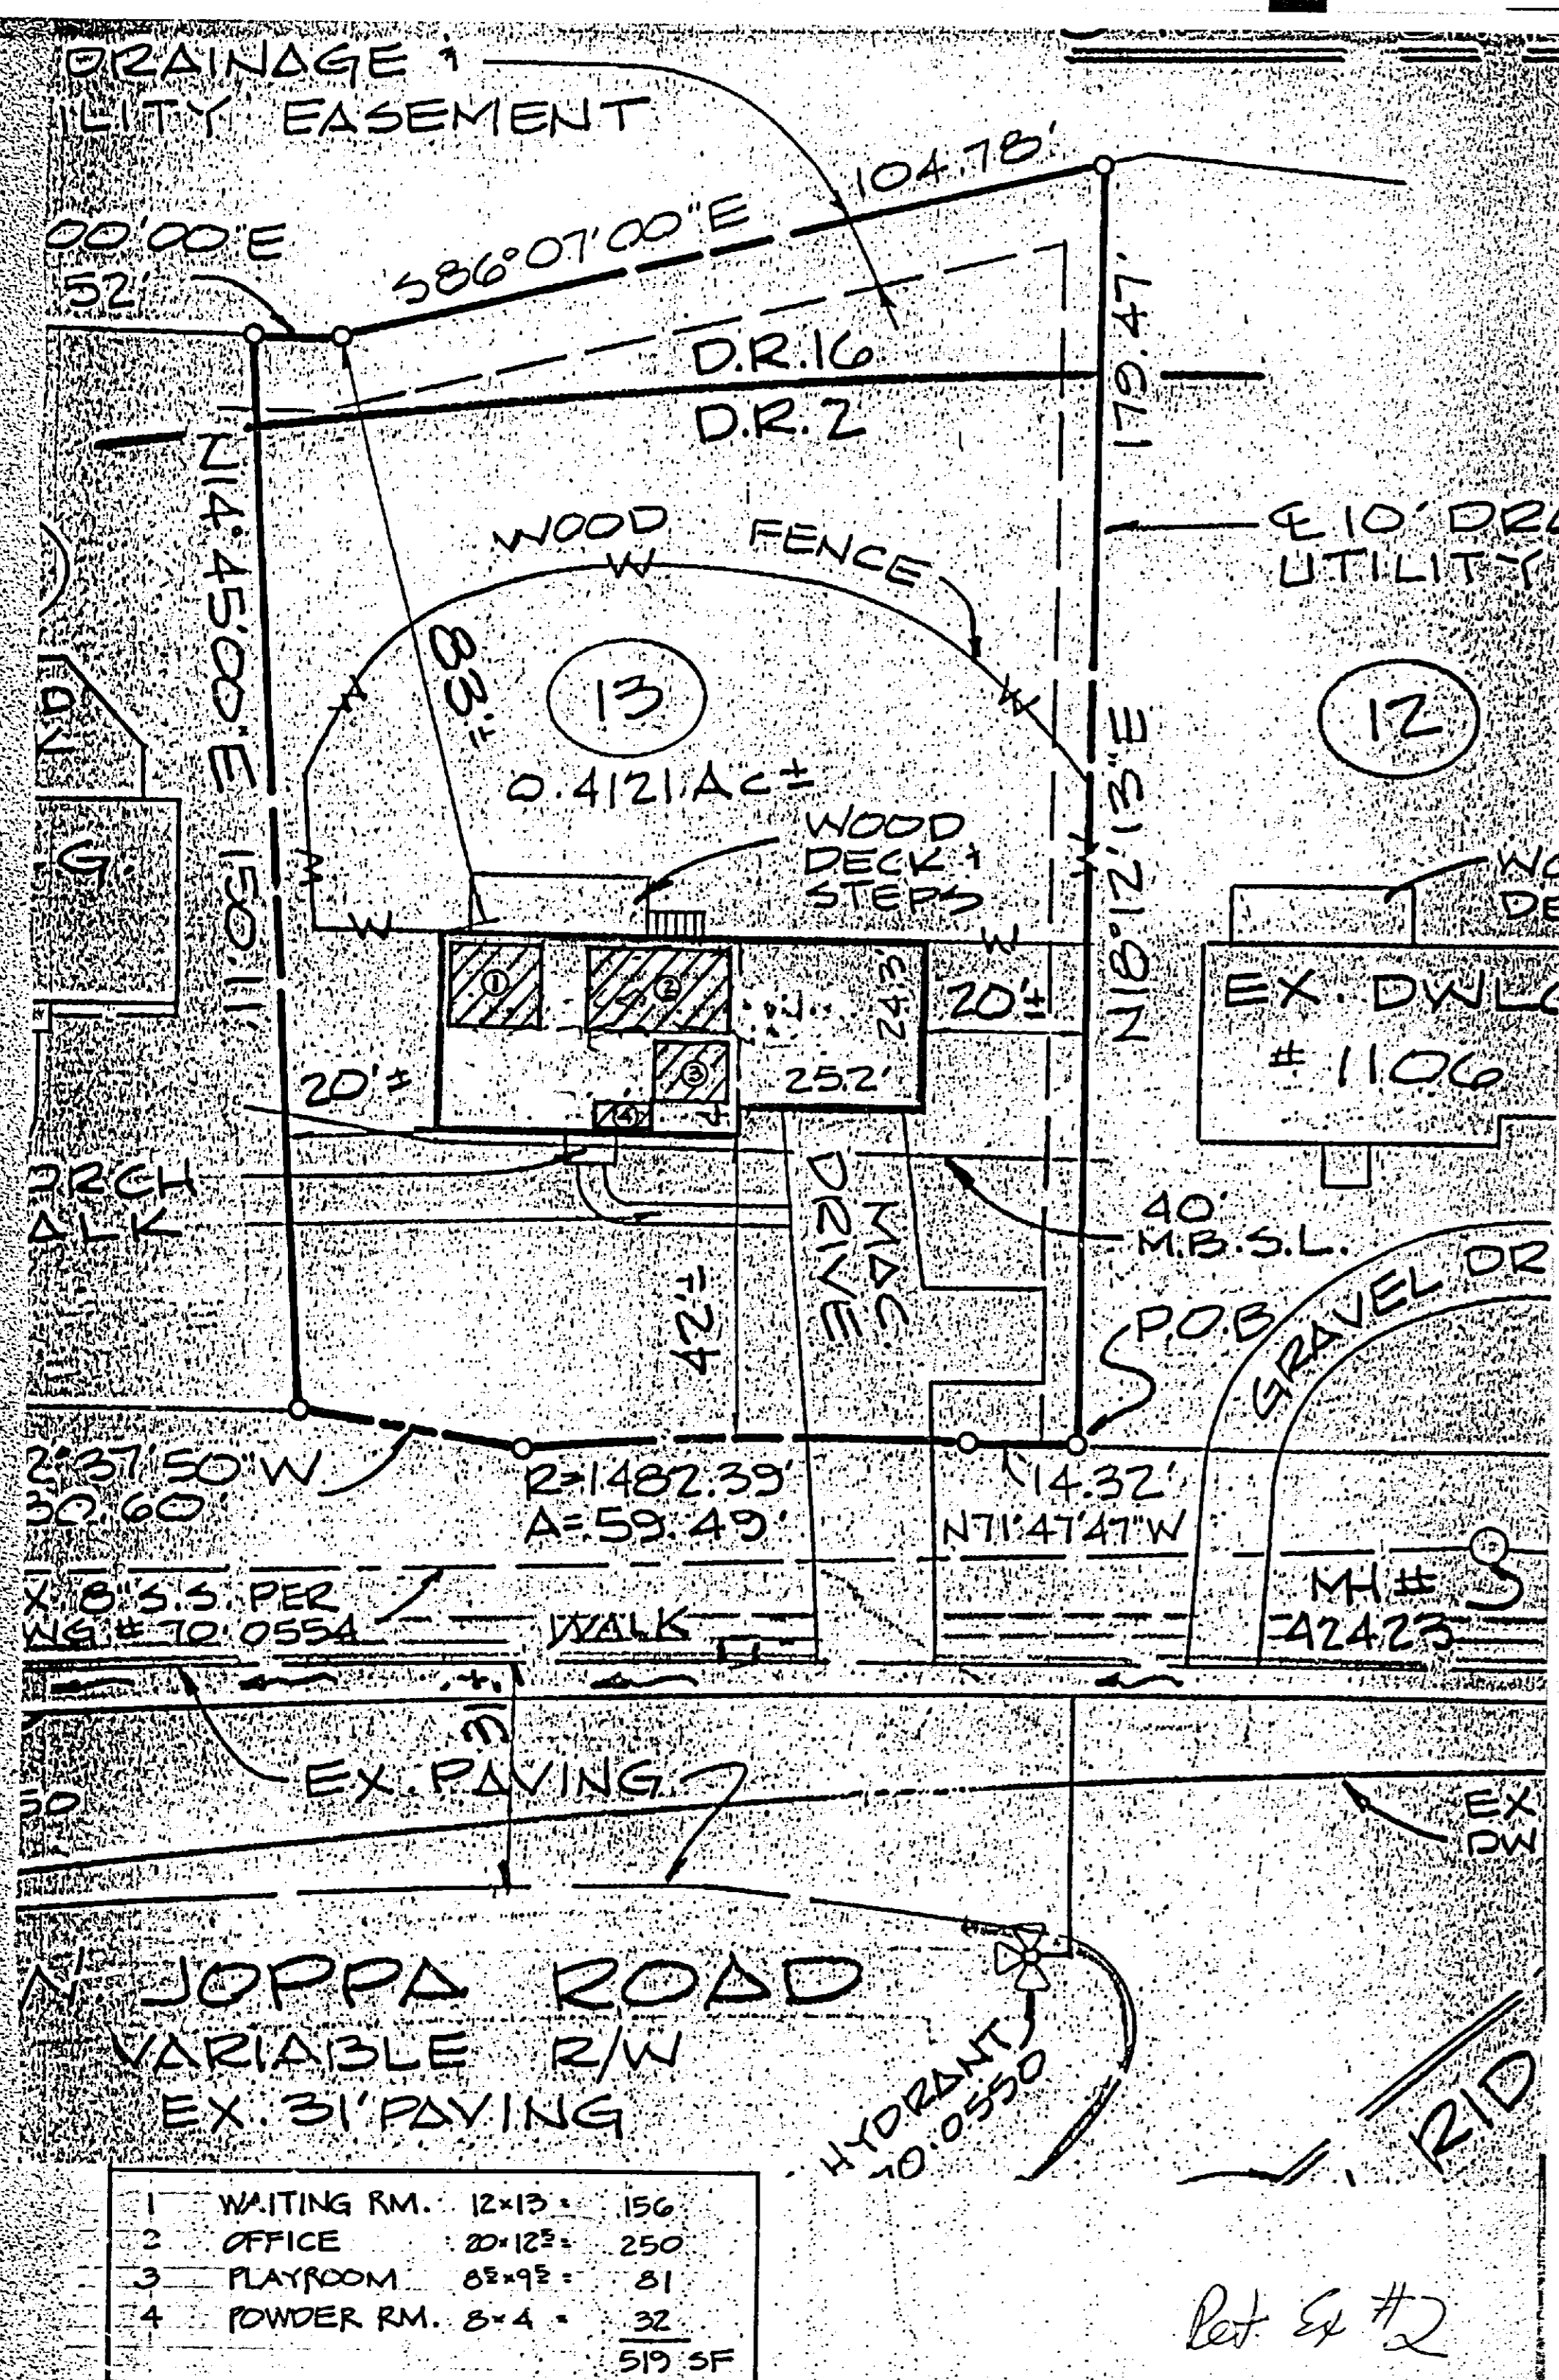 DRAINAGE &
ILITY EASEMENT
104.78'
S86°07'00"E
00'00"E
52'
D.R.16
D.R.2
179.47'
N14°45'00"E 150.11'
WOOD FENCE
W
W
W
℄ 10' DRA
UTILITY
83'±
13
12
0.4121 Ac±
N18°12'13"E
WOOD
DECK &
STEPS
WO
DE
G.
W
W
W
W
1
2
24.3'
20'±
EX. DWLG
# 1106
20'±
3
25.2'
4
ORCH
ALK
MAC.
DRIVE
40'
M.B.S.L.
42'±
P.O.B.
GRAVEL DR
2°37'50"W
30.60'
R=1482.39'
A=59.49'
14.32'
N71°47'47"W
X. 8" S.S. PER
WG. # 70.0554
WALK
MH #
42423
31'±
EX. PAVING
50
EX
DW
JOPPA ROAD
VARIABLE R/W
EX. 31' PAVING
HYDRANT
70.0550
RID
1 WAITING RM. 12×13 = 156
2 OFFICE 20×12⁵ = 250
3 PLAYROOM 8⁵×9⁵ = 81
4 POWDER RM. 8×4 = 32
519 SF
Pet Ex #2